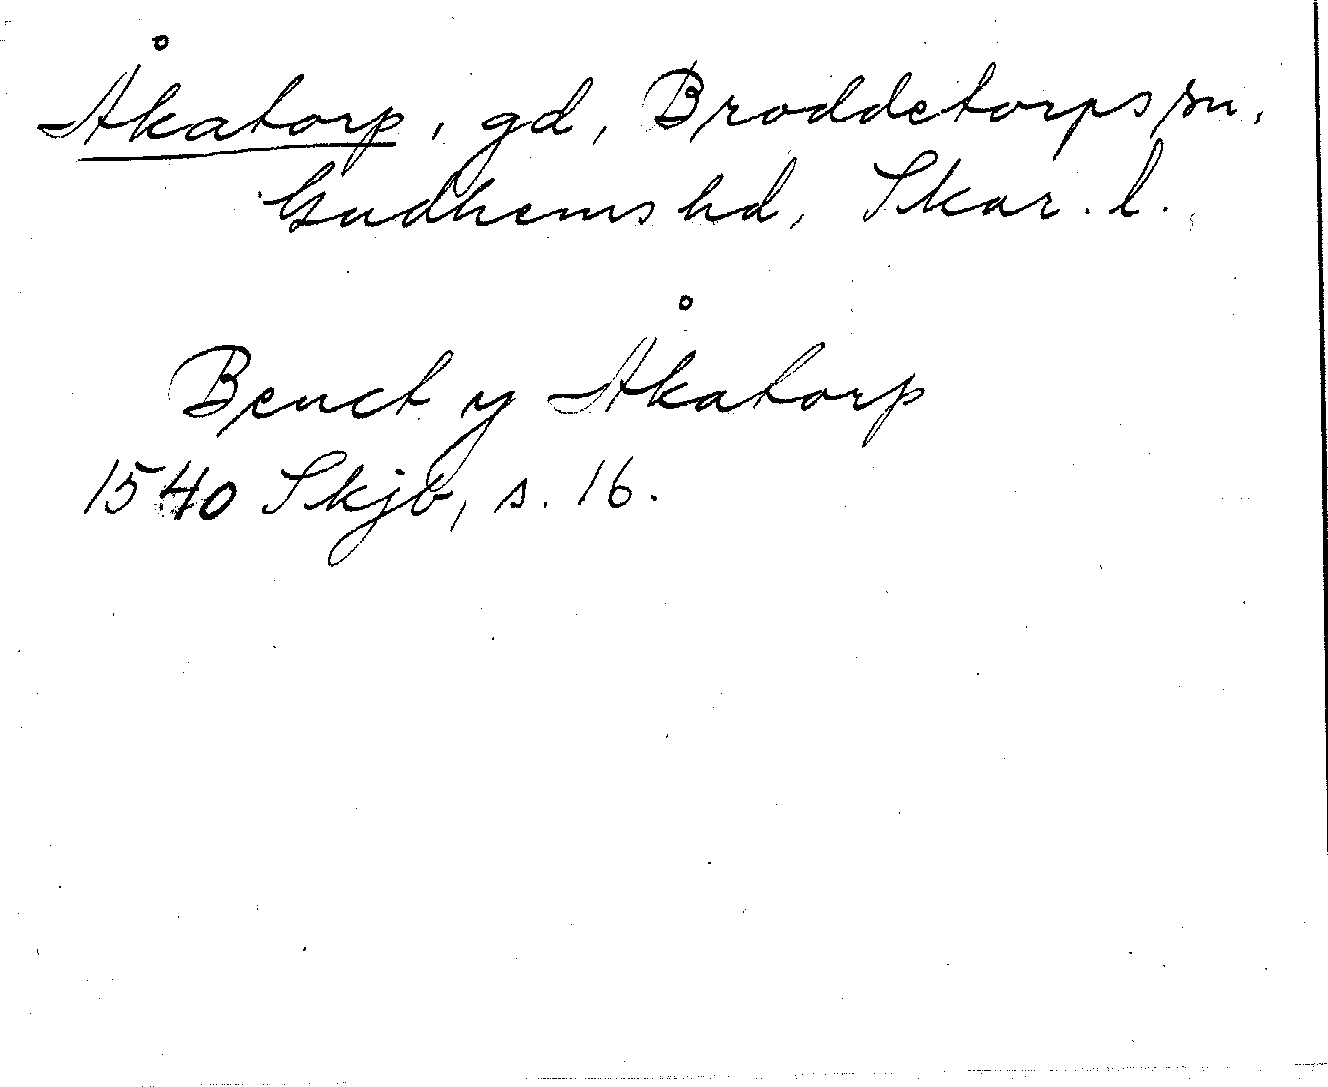 Åkatorp, gd, Broddetorps sn,
Gudhems hd, Skar. l.
Benct y Åkatorp
1540 Skjb, s. 16.